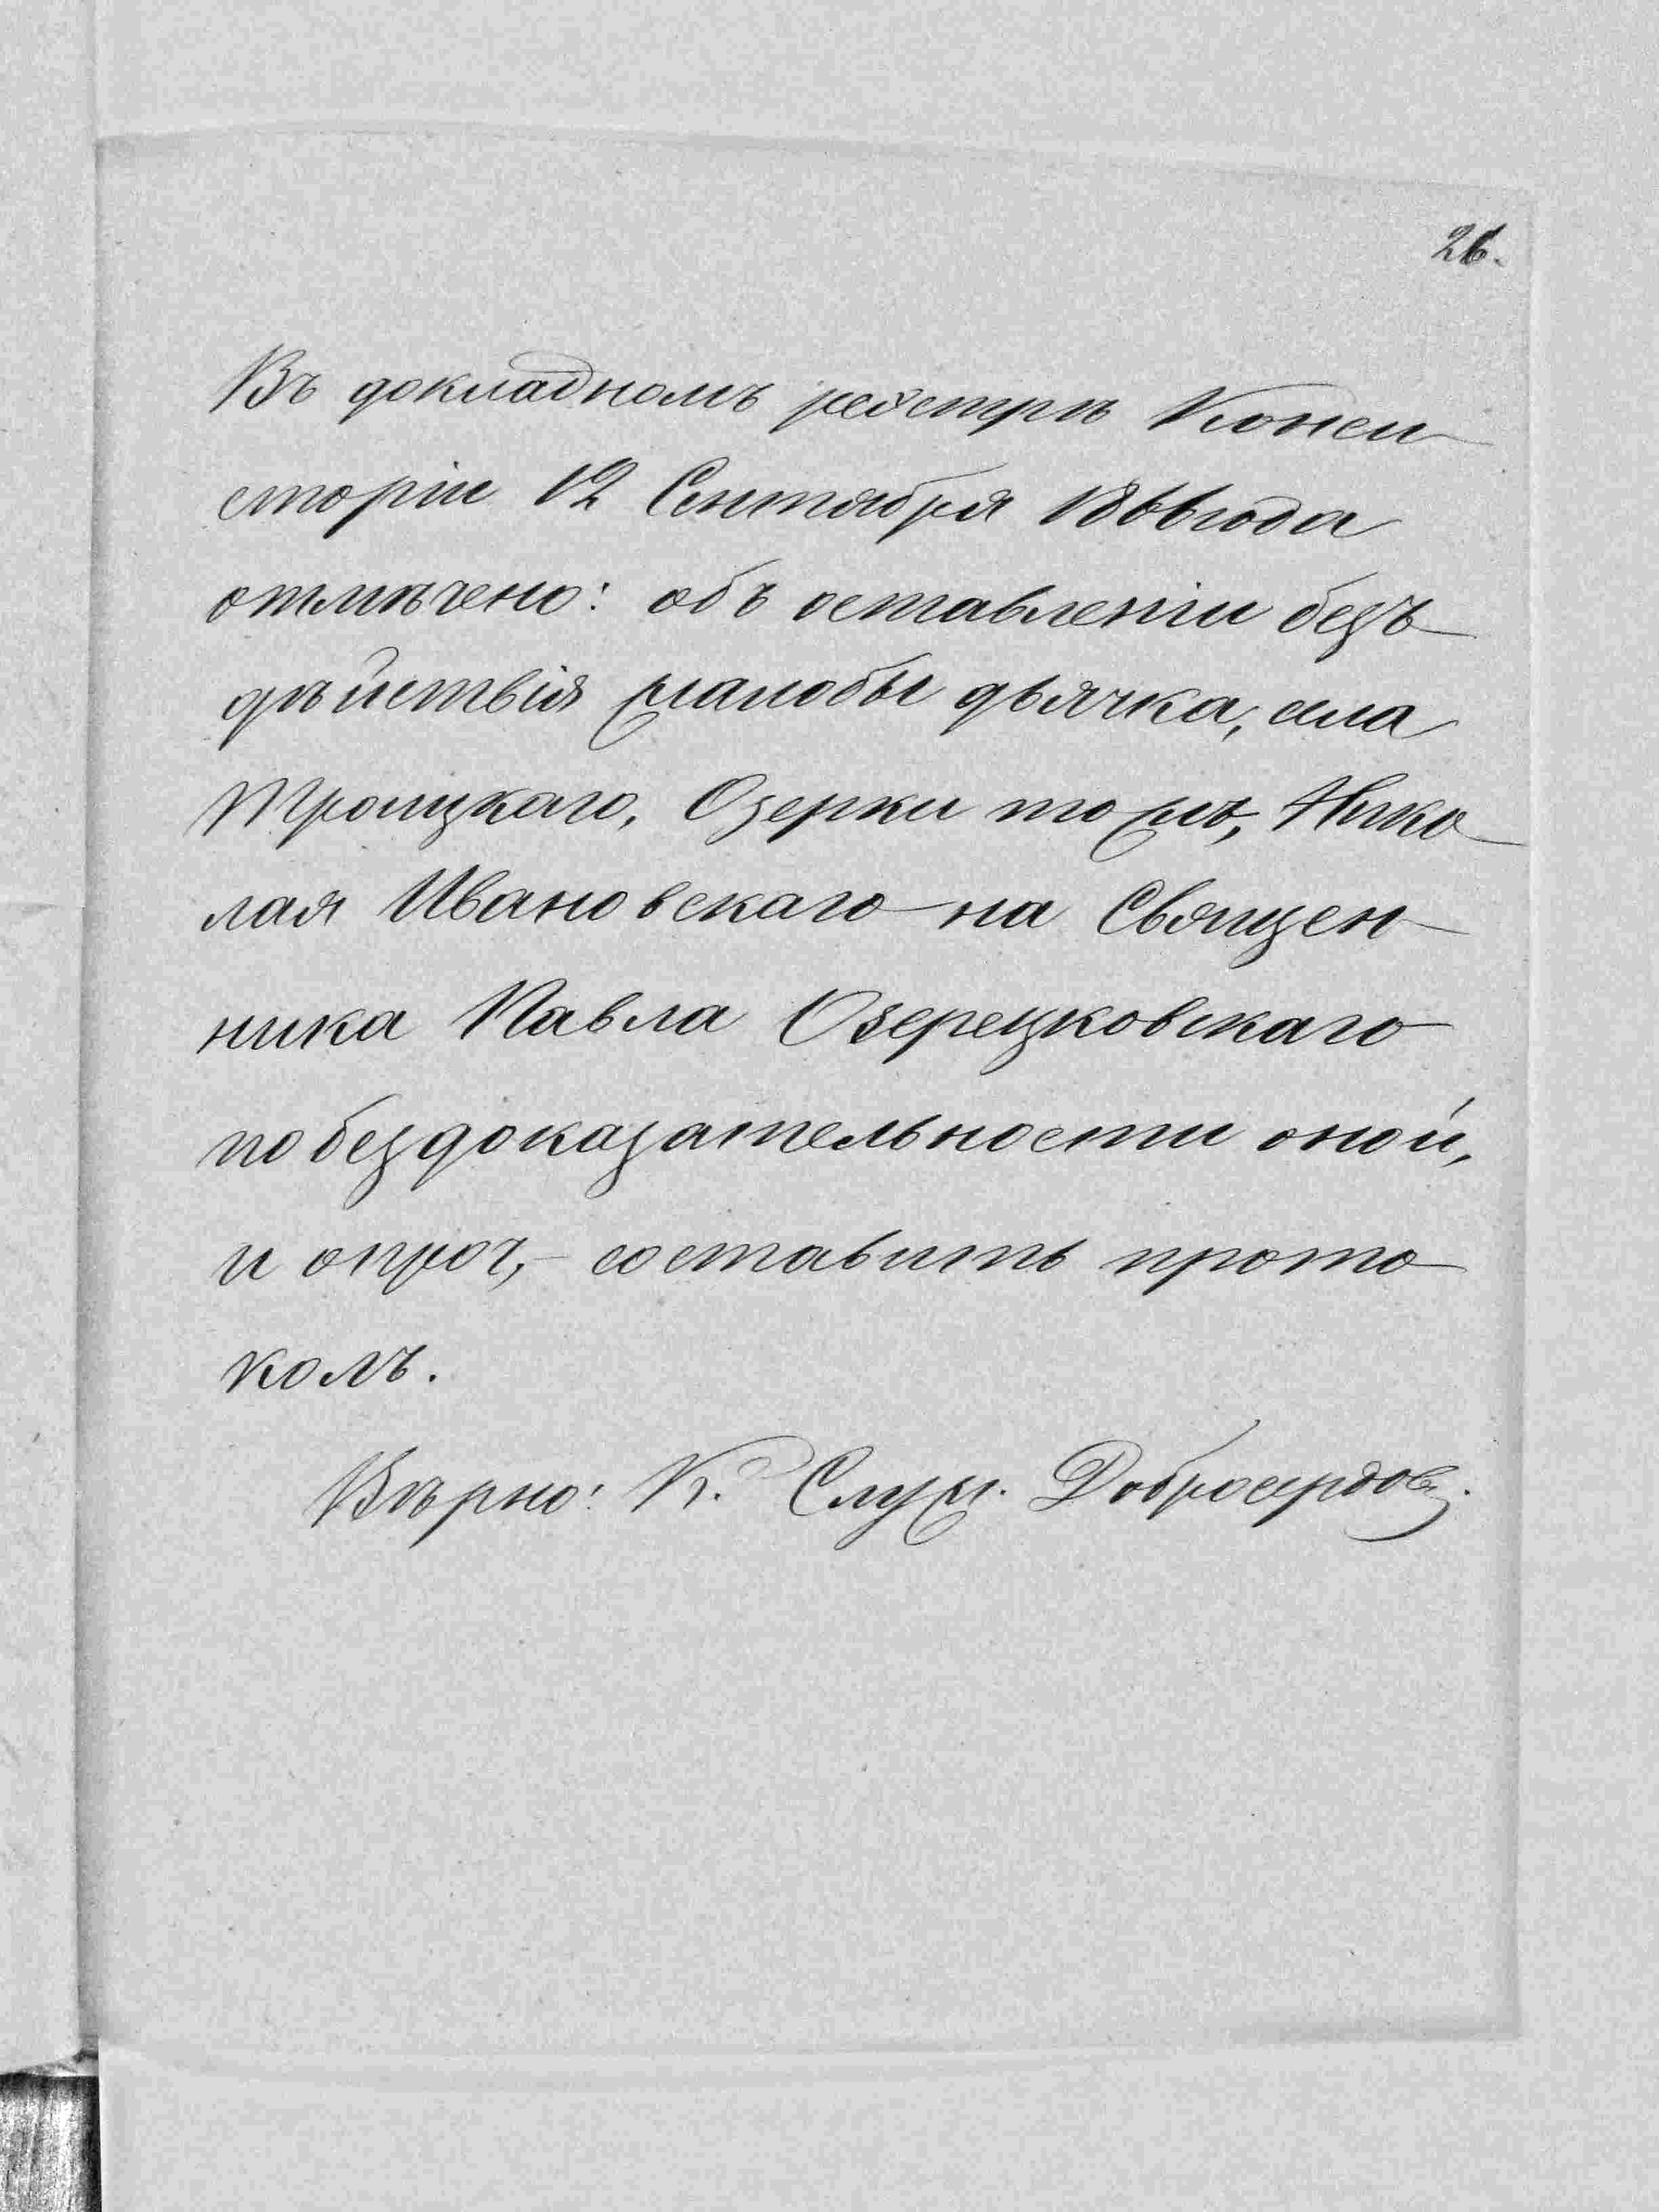 26.
Въ докладномъ реестрѣ Конси
сторіи 12 Сентября 1866 года
отмѣчено: объ оставленіи безъ
дѣйствія жалобы дьячка, села
Троицкаго, Озерки тожъ, Нико
лая Ивановскаго на Священ
ника Павла Озерецковскаго
по бездоказательности оной,
и о проч,- составить прото
колъ.
Вѣрно: К. Служ. Добросердовъ.